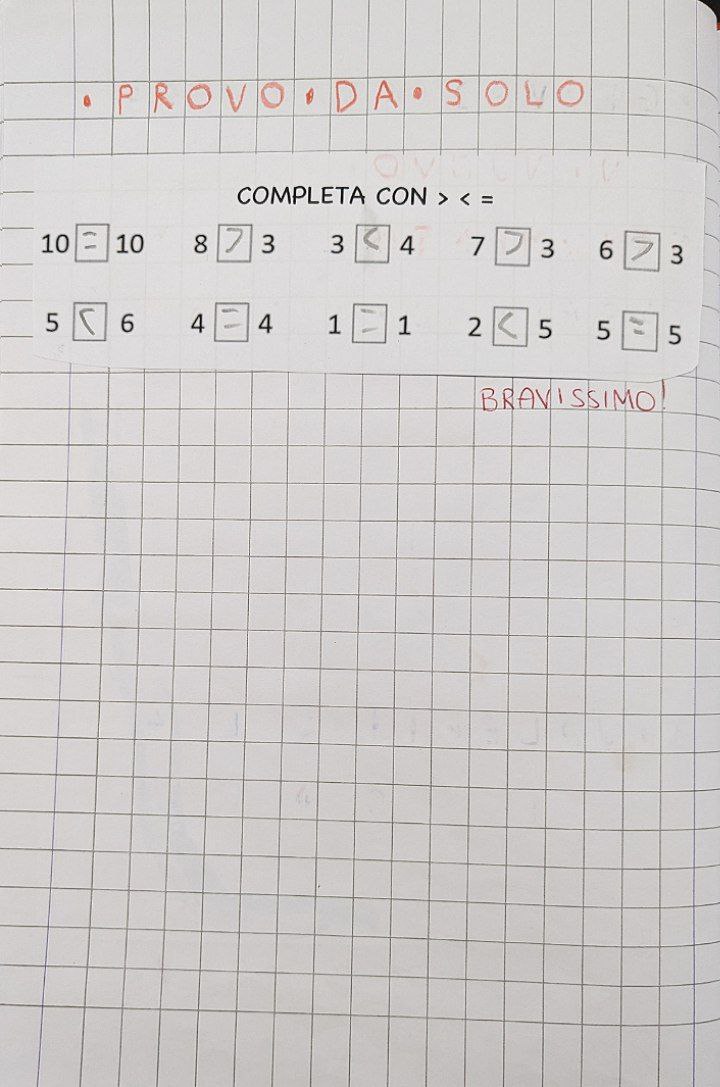 • PROVO • DA • SOLO
COMPLETA CON > < =
10 = 10 8 > 3 3 < 4 7 > 3 6 > 3
5 < 6 4 = 4 1 = 1 2 < 5 5 = 5
BRAVISSIMO!